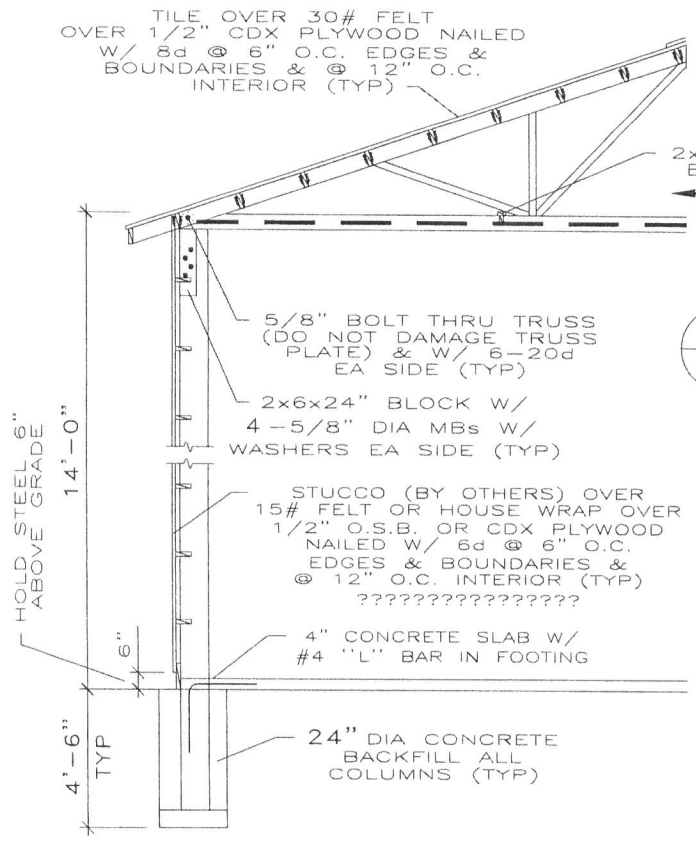 TILE OVER 30# FELT
OVER 1/2" CDX PLYWOOD NAILED
W/ 8d @ 6" O.C. EDGES &
BOUNDARIES & @ 12" O.C.
INTERIOR (TYP)
2x
5/8" BOLT THRU TRUSS
(DO NOT DAMAGE TRUSS
PLATE) & W/ 6-20d
EA SIDE (TYP)
2x6x24" BLOCK W/
4-5/8" DIA MBs W/
WASHERS EA SIDE (TYP)
STUCCO (BY OTHERS) OVER
15# FELT OR HOUSE WRAP OVER
1/2" O.S.B. OR CDX PLYWOOD
NAILED W/ 6d @ 6" O.C.
EDGES & BOUNDARIES &
@ 12" O.C. INTERIOR (TYP)
????????????????
4" CONCRETE SLAB W/
#4 "L" BAR IN FOOTING
24" DIA CONCRETE
BACKFILL ALL
COLUMNS (TYP)
HOLD STEEL 6"
ABOVE GRADE
14'-0"
6"
4'-6"
TYP